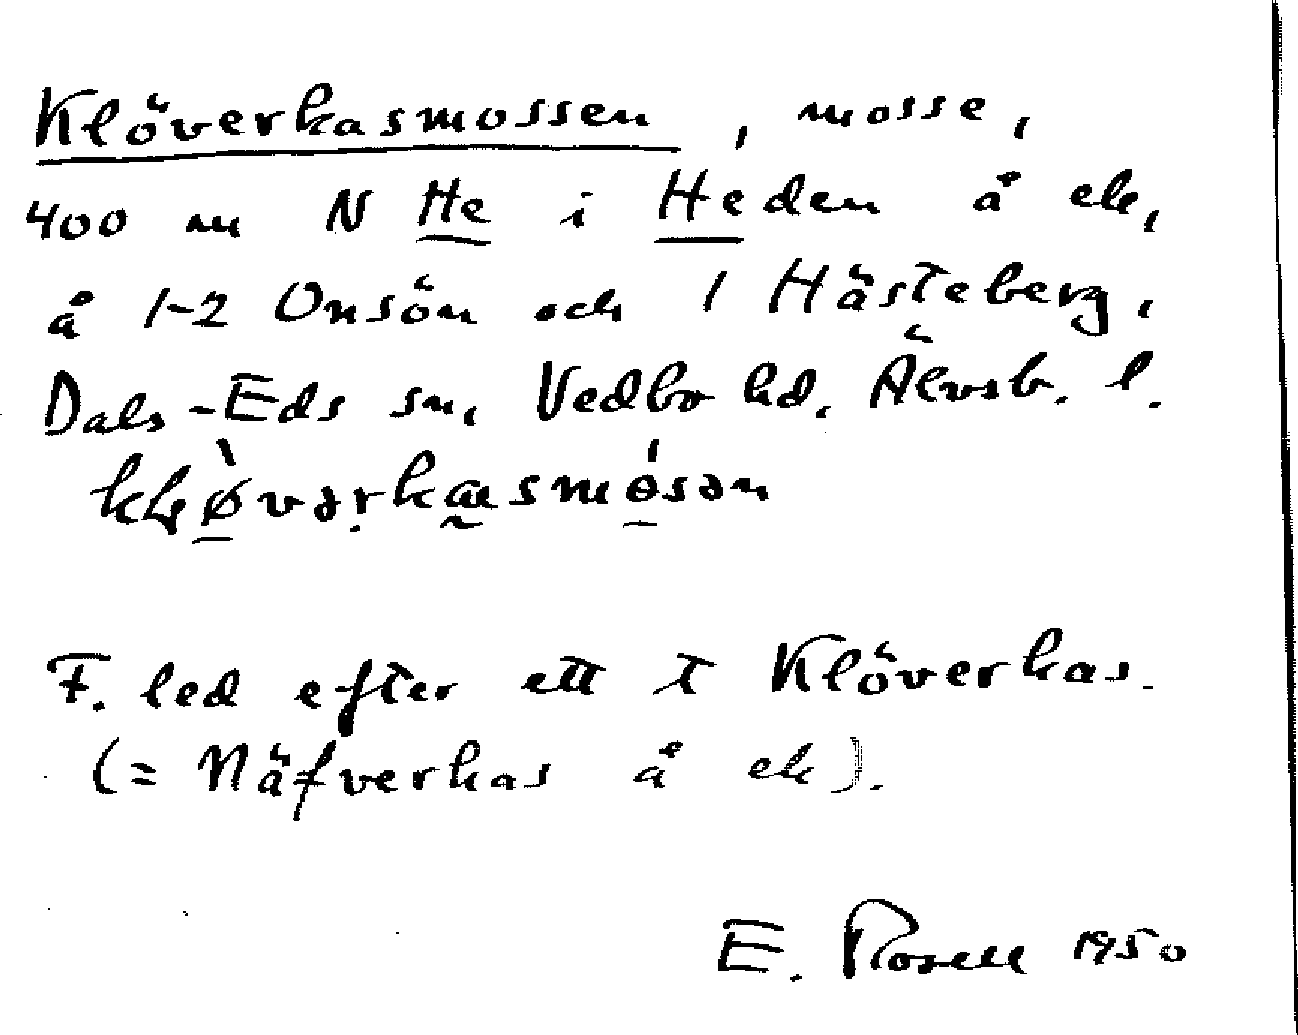 Klöverkasmossen, mosse,
400 m N He i Heden å ek,
å 1-2 Onsön och 1 Hästeberg,
Dals-Eds sn, Vedbo hd. Älvsb. l.
F. led efter ett t Klöverkas.
(= Näfverkas å ek).
E. Rosell 1950